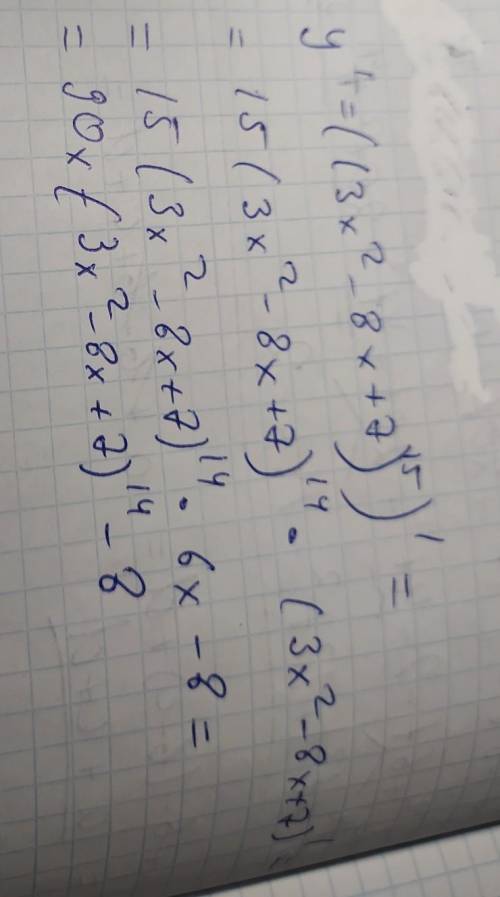 y' = ((3x² - 8x + 7)¹⁵)' =
= 15(3x² - 8x + 7)¹⁴ · (3x² - 8x + 7)' =
= 15(3x² - 8x + 7)¹⁴ · 6x - 8 =
= 90x(3x² - 8x + 7)¹⁴ - 8